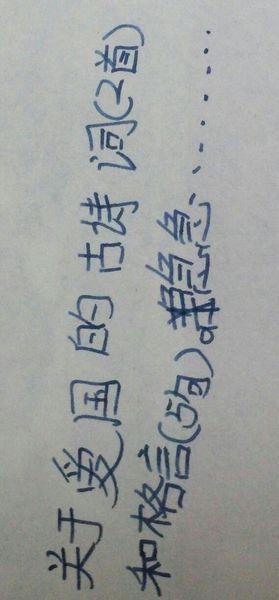 关于爱国的古诗词(2首)
和格言(5句)。急急、......